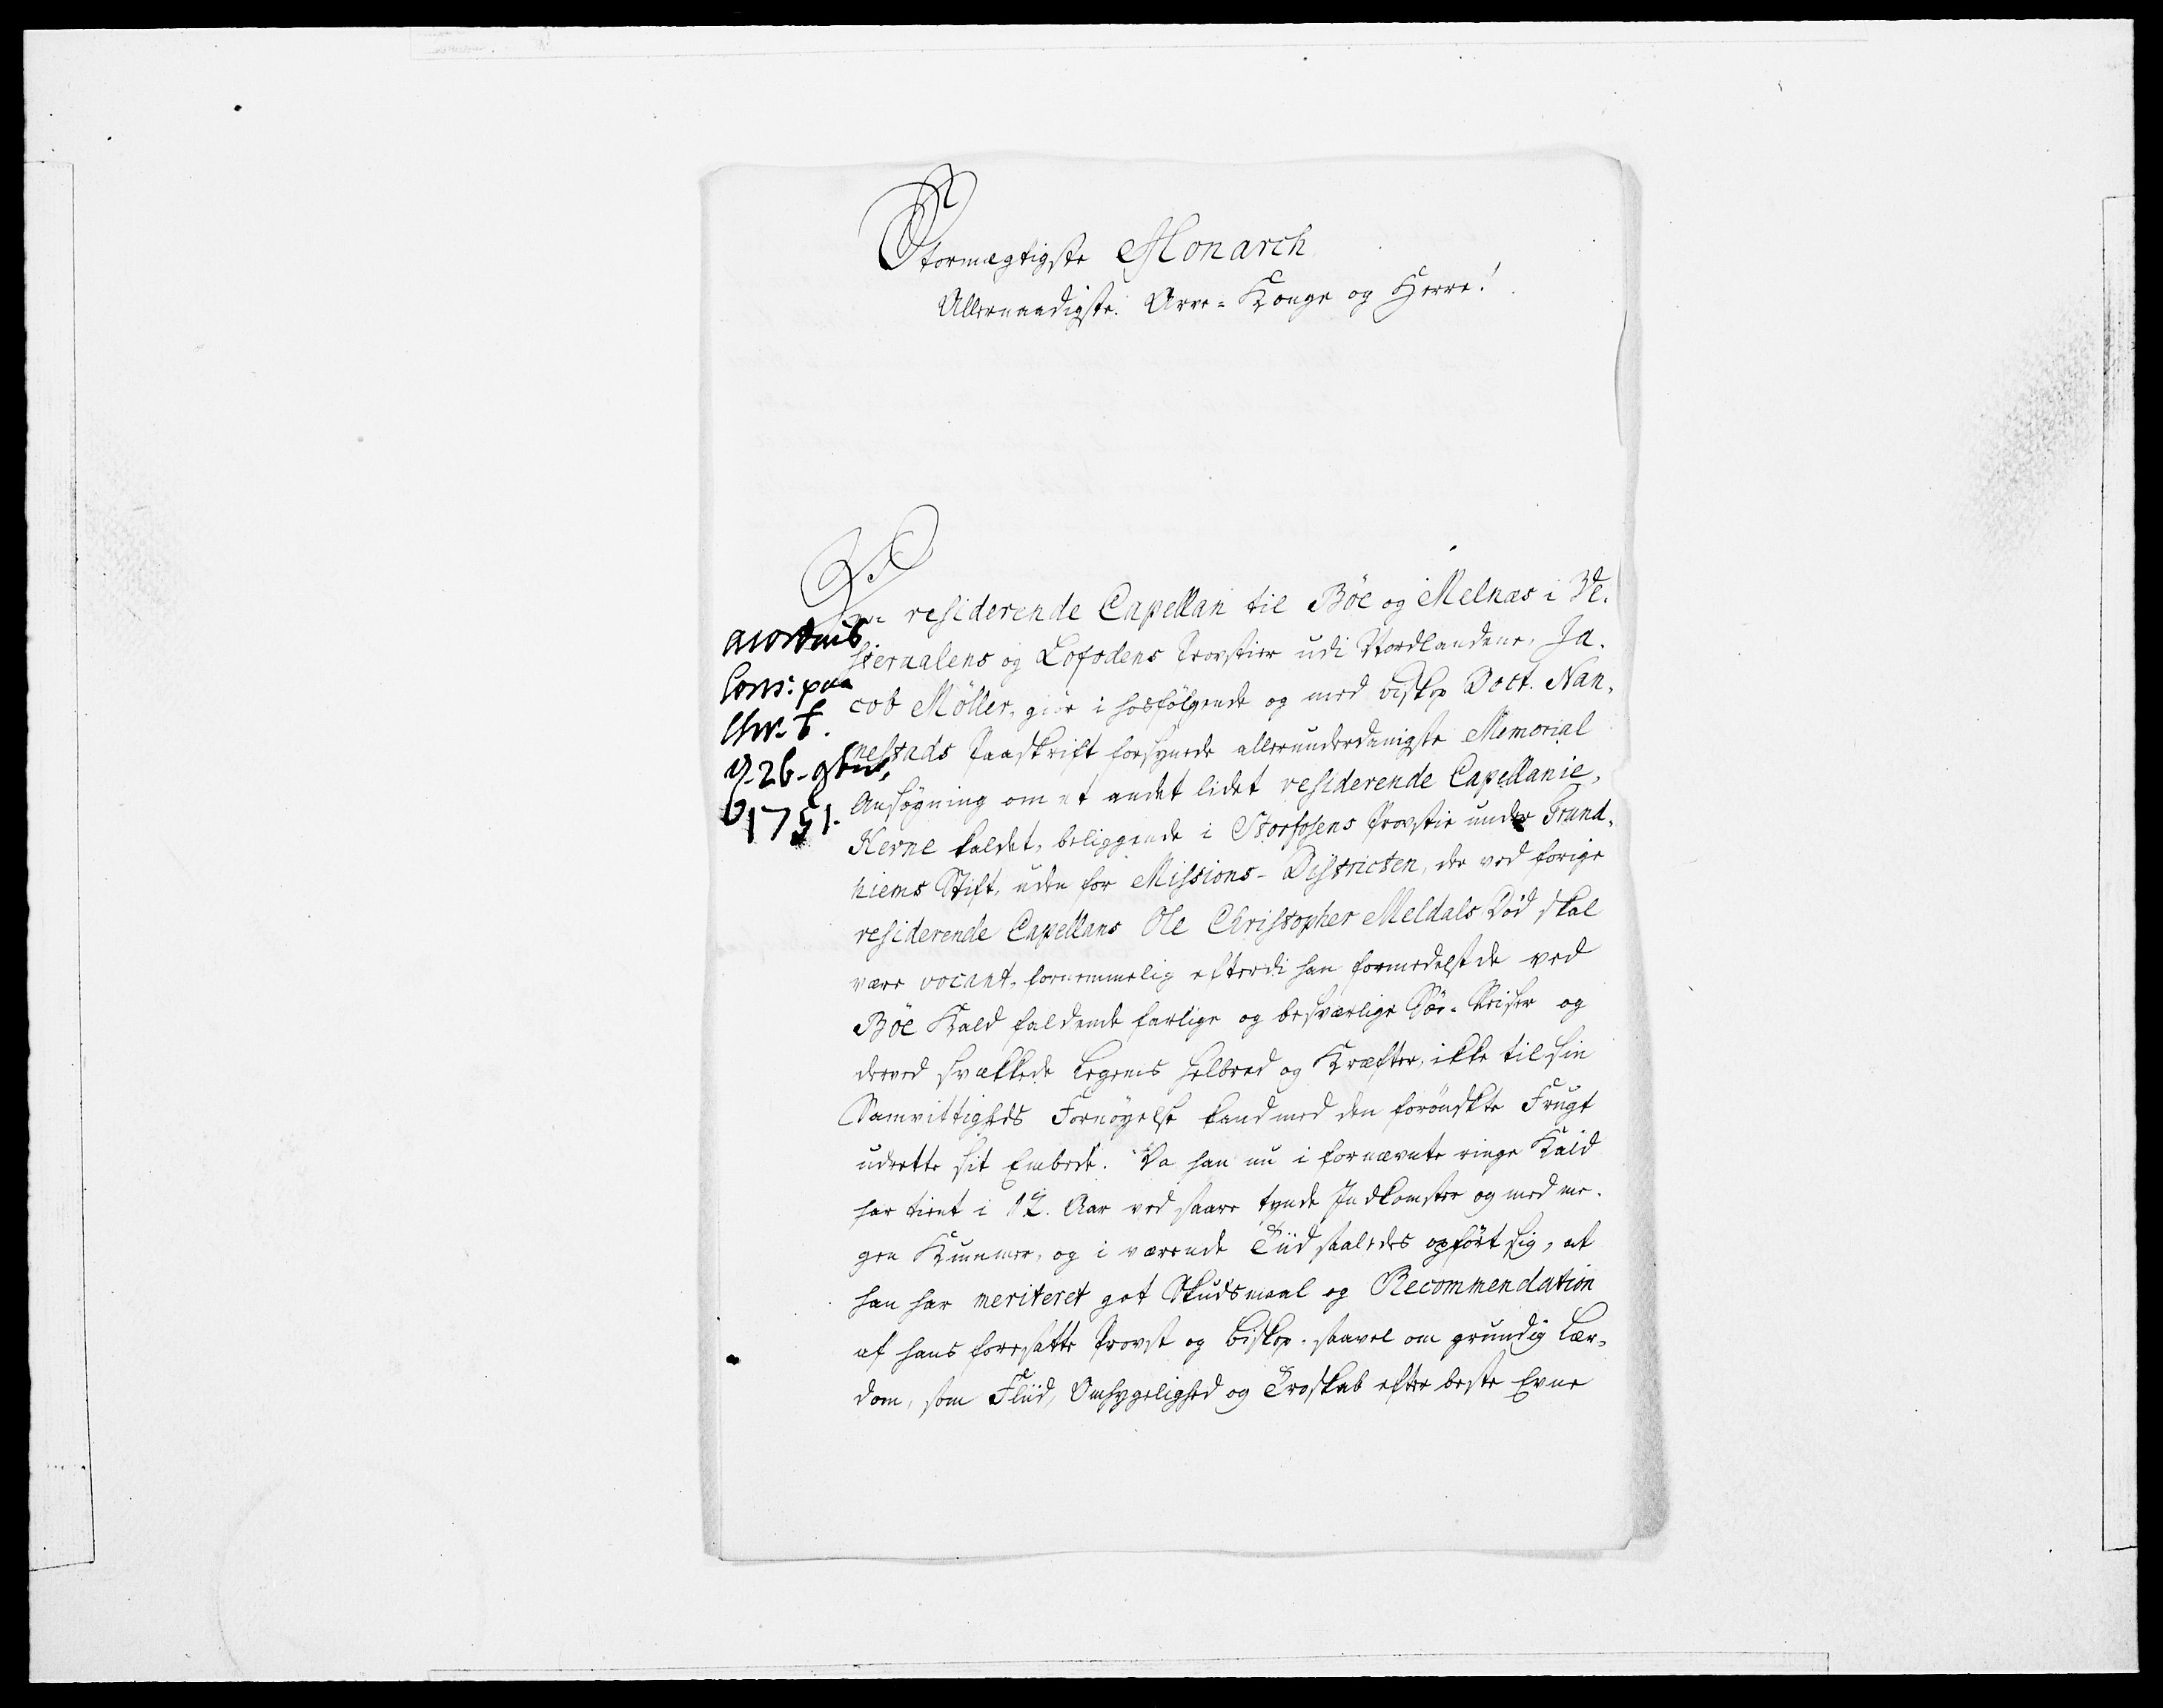 Stormægtigste Monarch
Allernaadigste Arve-Konge og Herre!
Den residerende Capellan til Böe og Melnæs i Ve-
steraalens og Lofodens Provstier udi Nordlandene, Ja-
cob Möller, giör i hosfölgende og med Biskop Doct. Nan-
nestads Paaskrift forsynede allerunderdanigste Memorial
Ansögning om et andet lidet residerende Capellanie,
Hevne kaldet, beliggende i Storfosens Provstie under Trund-
hiems Stift, uden for Missions-Districten, der ved forige
residerende Capellans Ole Christopher Meldals Död skal
være vocant, fornemmelig efterdi han formedelst de ved
Böe Kald faldende farlige og besværlige Söe-Reiser og
derved svækkede Legems Helbred og Kræfter, ikke til sin
Samvittigheds Fornöyelse kand med den forönskte Frugt
udrette sit Embede. Da han nu i fornævnte ringe Kald
har tient i 12. Aar ved saare tynde Indkomster og med me-
gen Kummer, og i værende Tiid saaledes opfört sig, at
han har meriteret got Skudsmaal og Recommendation
af hans foresatte Provst og Biskop, saavel om grundig Lær-
dom, som Fliid, Omhyggelighed og Troskab efter beste Evne
Cons: paa
d. 26. 9br
1751.